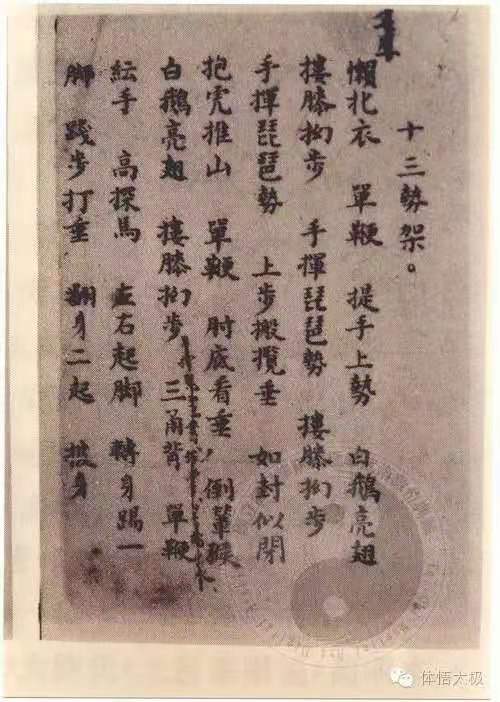 十三勢架。
懶扎衣　單鞭　提手上勢　白鵝亮翅
摟膝拗步　手揮琵琶勢　摟膝拗步
手揮琵琶勢　上步搬攬垂　如封似閉
抱虎推山　單鞭　肘底看垂　倒輦猴
白鵝亮翅　摟膝拗步　三甬背　單鞭
紜手　高探馬　左右起脚　轉身踢一
脚　踐步打垂　翻身二起　披身
体悟太极